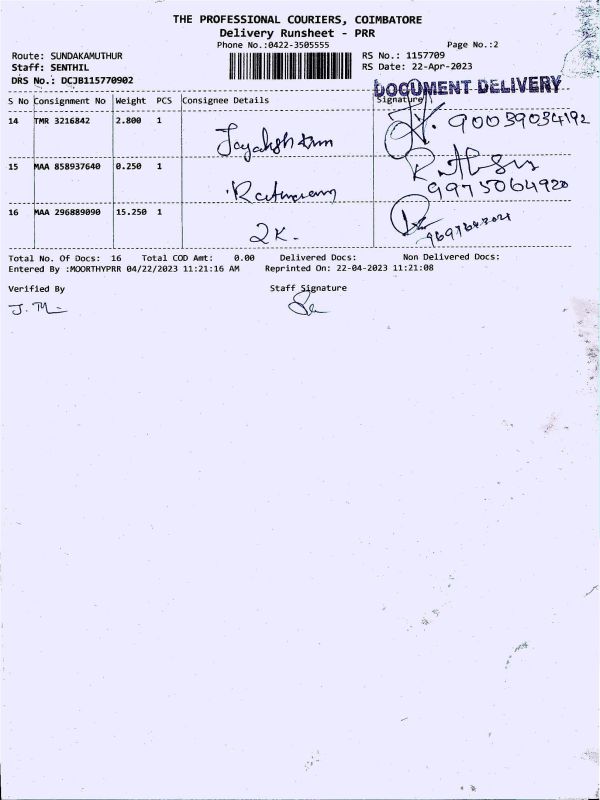 THE PROFESSIONAL COURIERS, COIMBATORE
Delivery Runsheet - PRR
Phone No.:0422-3505555
Page No.:2
Route: SUNDAKAMUTHUR
RS No.: 1157709
Staff: SENTHIL
RS Date: 22-Apr-2023
DRS No.: DCJB115770902
DOCUMENT DELIVERY
S No Consignment No Weight PCS Consignee Details Signature
14 TMR 3216842 2.800 1
90039034192
15 MAA 858937640 0.250 1
9975064920
16 MAA 296889090 15.250 1
2K.
Total No. Of Docs: 16 Total COD Amt: 0.00 Delivered Docs: Non Delivered Docs:
Entered By :MOORTHYPRR 04/22/2023 11:21:16 AM Reprinted On: 22-04-2023 11:21:08
Verified By Staff Signature